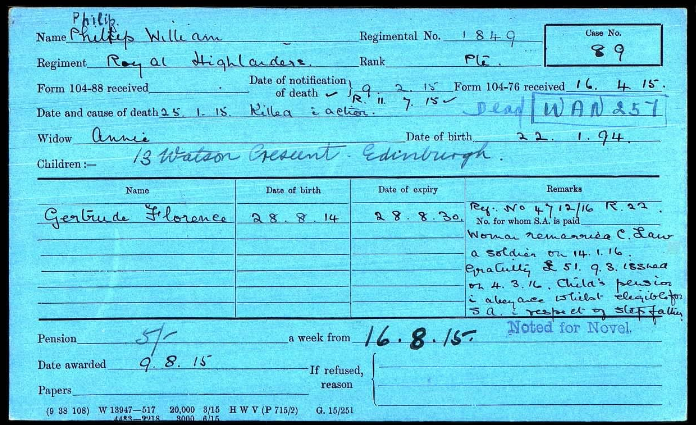 Philip
Name Phillip William Regimental No. 1849 Case No.
89
Regiment Royal Highlanders. Rank Pte.
Form 104-88 received Date of notification of death ✓ 9. 2. 15 Form 104-76 received 16. 4. 15.
R. 11. 7. 15 ✓
Date and cause of death 25. 1. 15. Killed i action. Dead WAN 257
Widow Annie Date of birth 22. 1. 94.
Children :— 13 Watson Crescent. Edinburgh.
Name Date of birth Date of expiry Remarks
Reg. No 4712/16 R. 22
No. for whom S.A. is paid
Gertrude Florence 28. 8. 14 28. 8. 30.
Woman remarried C. Law
a soldier on 14. 1. 16.
Gratuity £ 51. 9. 8. issued
on 4. 3. 16. Child's pension
i abeyance whilst eligible for
S A. i respect of step father.
Noted for Novel.
Pension 5/- a week from 16. 8. 15.
Date awarded 9. 8. 15
If refused, reason
Papers
(9 38 108) W 13947—517 20,000 3/15 H W V (P 715/2) G. 15/251
3000 6/15